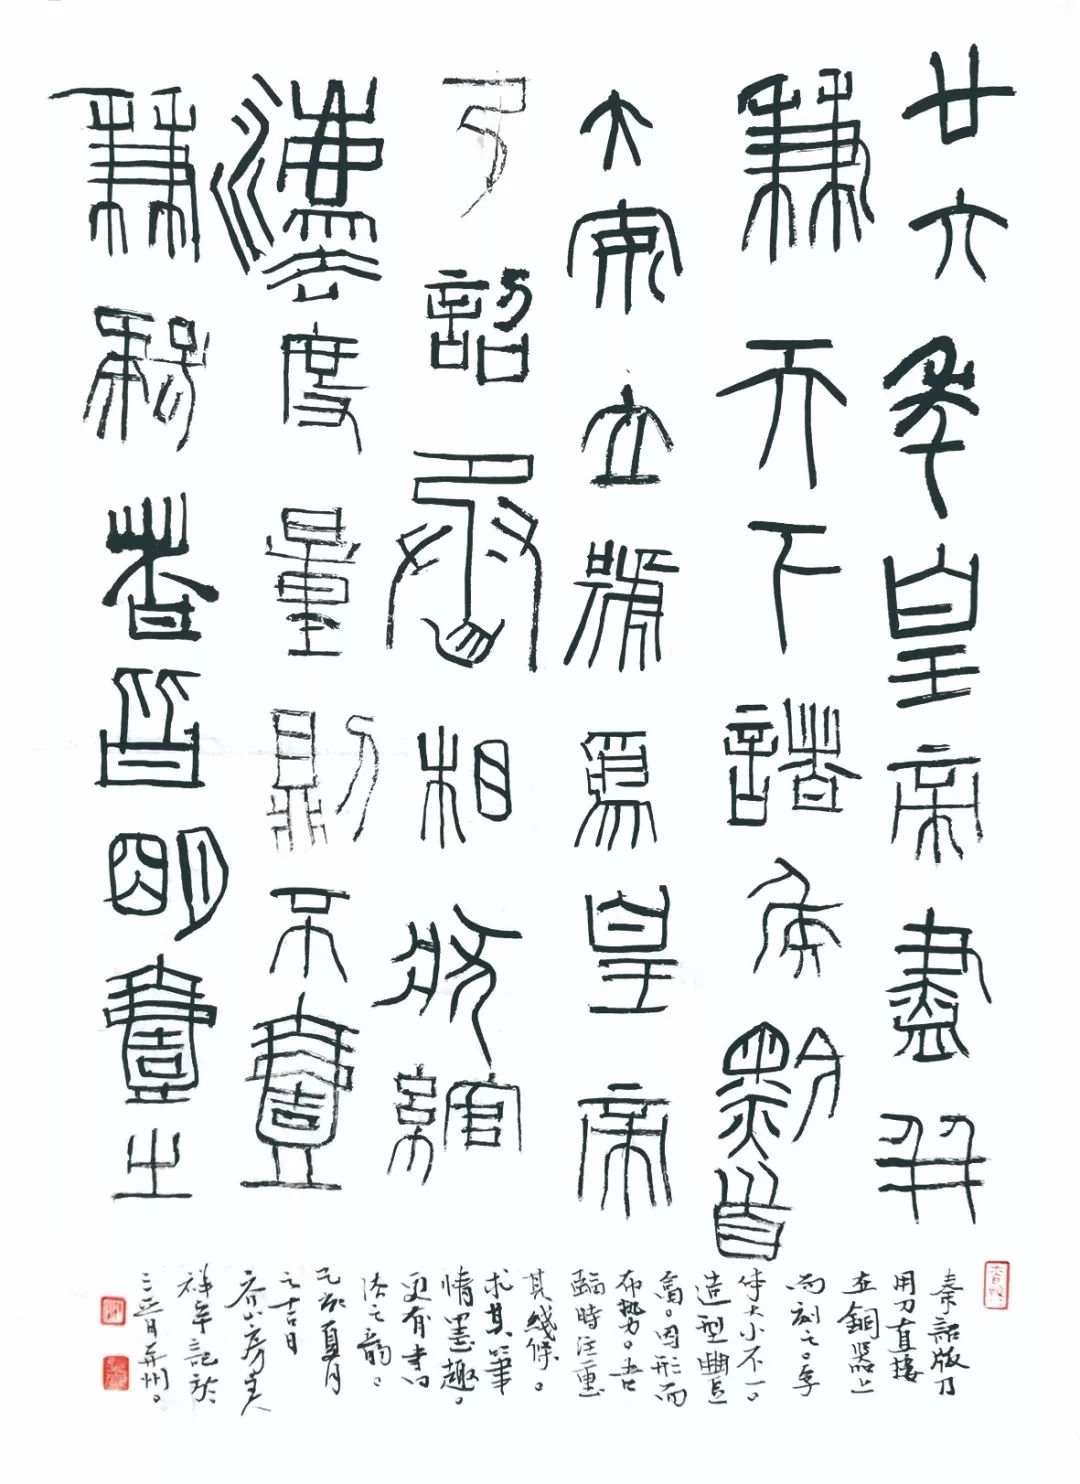 廿六年皇帝盡并
兼天下諸侯黔首
大安立號爲皇帝
乃詔丞相狀綰
灋度量則不壹
兼疑者皆明壹之
秦詔版刀
用刀直接
在銅器上
而刻之。字
体大小不一。
造型豐
富。因形而
布勢。吾
臨時注重
其綫條。
求其筆
情墨趣。
更有書
法之韻。
己亥夏月
之吉日
山房主人
祥年記於
三晋并州。